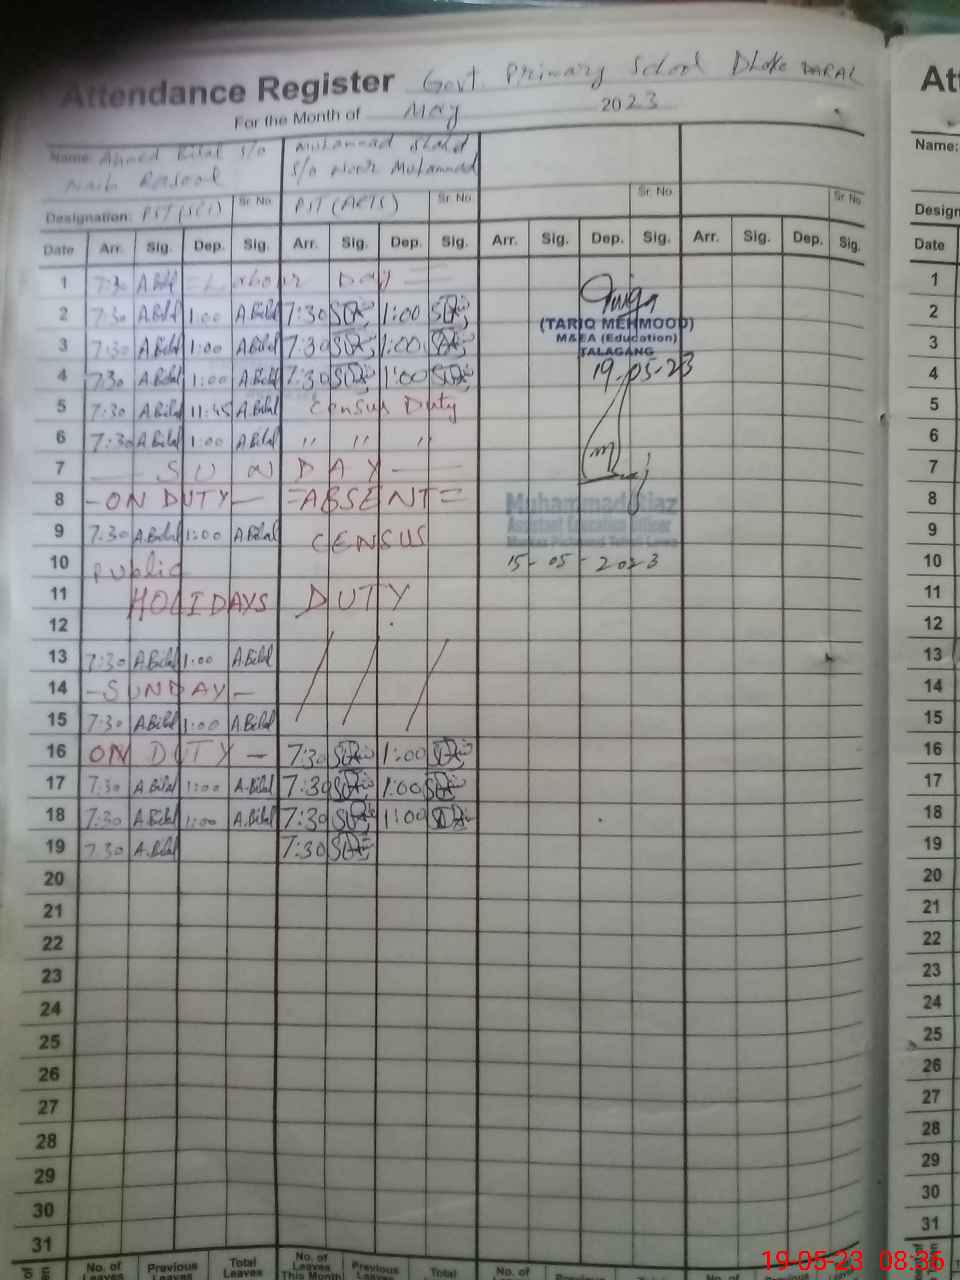 Attendance Register Govt. Primary School Dhoke DARAL
For the Month of May 2023
Name: Ahmed Bilal s/o Muhammad
s/o Noor Muhammad
Designation: PST (SCI) Sr. No. PST (ARTS) Sr. No. Sr. No. Sr. No.
Date Arr. Sig. Dep. Sig. Arr. Sig. Dep. Sig. Arr. Sig. Dep. Sig. Arr. Sig. Dep. Sig.
1 7:30 A.Bilal = Labour Day =
2 7:30 A.Bilal 1:00 A.Bilal 7:30 1:00
(TARIQ MEHMOOD)
3 7:30 A.Bilal 1:00 A.Bilal 7:30 1:00
M&EA (Education)
TALAGANG
4 7:30 A.Bilal 1:00 A.Bilal 7:30 1:00 19-05-23
5 7:30 A.Bilal 11:45 A.Bilal Census Duty
6 7:30 A.Bilal 1:00 A.Bilal " " "
7 — SUNDAY —
8 - ON DUTY - =ABSENT=
Muhammad
Assistant Education Officer
9 7:30 A.Bilal 1:00 A.Bilal CENSUS
10 Public 15-05-2023
11 HOLIDAYS DUTY
12
13 7:30 A.Bilal 1:00 A.Bilal
14 - SUNDAY -
15 7:30 A.Bilal 1:00 A.Bilal
16 ON DUTY - 7:30 1:00
17 7:30 A.Bilal 1:00 A.Bilal 7:30 1:00
18 7:30 A.Bilal 1:00 A.Bilal 7:30 1:00
19 7:30 A.Bilal 7:30
20
21
22
23
24
25
26
27
28
29
30
31
No. of Leaves Previous Leaves Total Leaves No. of Leaves This Month Previous Leaves Total No. of Previous Total
Att
Name:
Design
Date
1
2
3
4
5
6
7
8
9
10
11
12
13
14
15
16
17
18
19
20
21
22
23
24
25
26
27
28
29
30
31
19-05-23 08:36